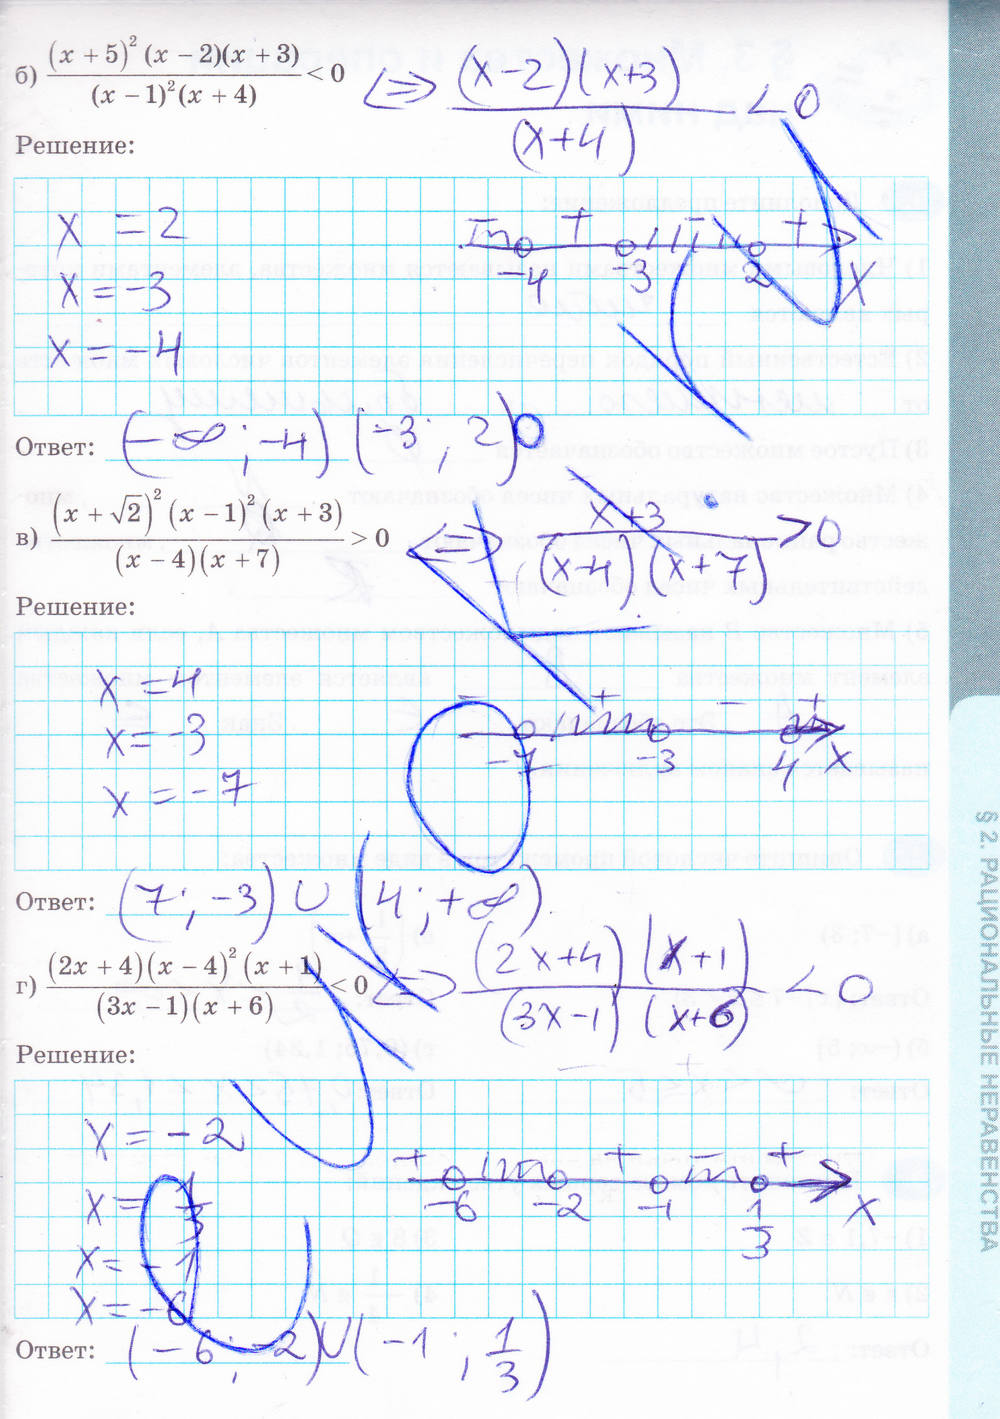 б) (x + 5)² (x − 2)(x + 3) / (x − 1)² (x + 4) < 0 <=> (x−2)(x+3) / (x+4) < 0
Решение:
x = 2
x = −3
x = −4
− + − +
−4 −3 2 x
Ответ: (−∞; −4) (−3; 2)
в) (x + √2)² (x − 1)² (x + 3) / (x − 4)(x + 7) > 0 <=> x+3 / (x−4)(x+7) > 0
Решение:
x = 4
x = −3
x = −7
− + − +
−7 −3 4 x
Ответ: (7; −3) ∪ (4; +∞)
г) (2x + 4)(x − 4)² (x + 1) / (3x − 1)(x + 6) < 0 <=> (2x+4)(x+1) / (3x−1)(x+6) < 0
Решение:
x = −2
x = 1/3
x = −1
x = −6
+ − + − +
−6 −2 −1 1/3 x
Ответ: (−6; −2) ∪ (−1; 1/3)
§ 2. РАЦИОНАЛЬНЫЕ НЕРАВЕНСТВА